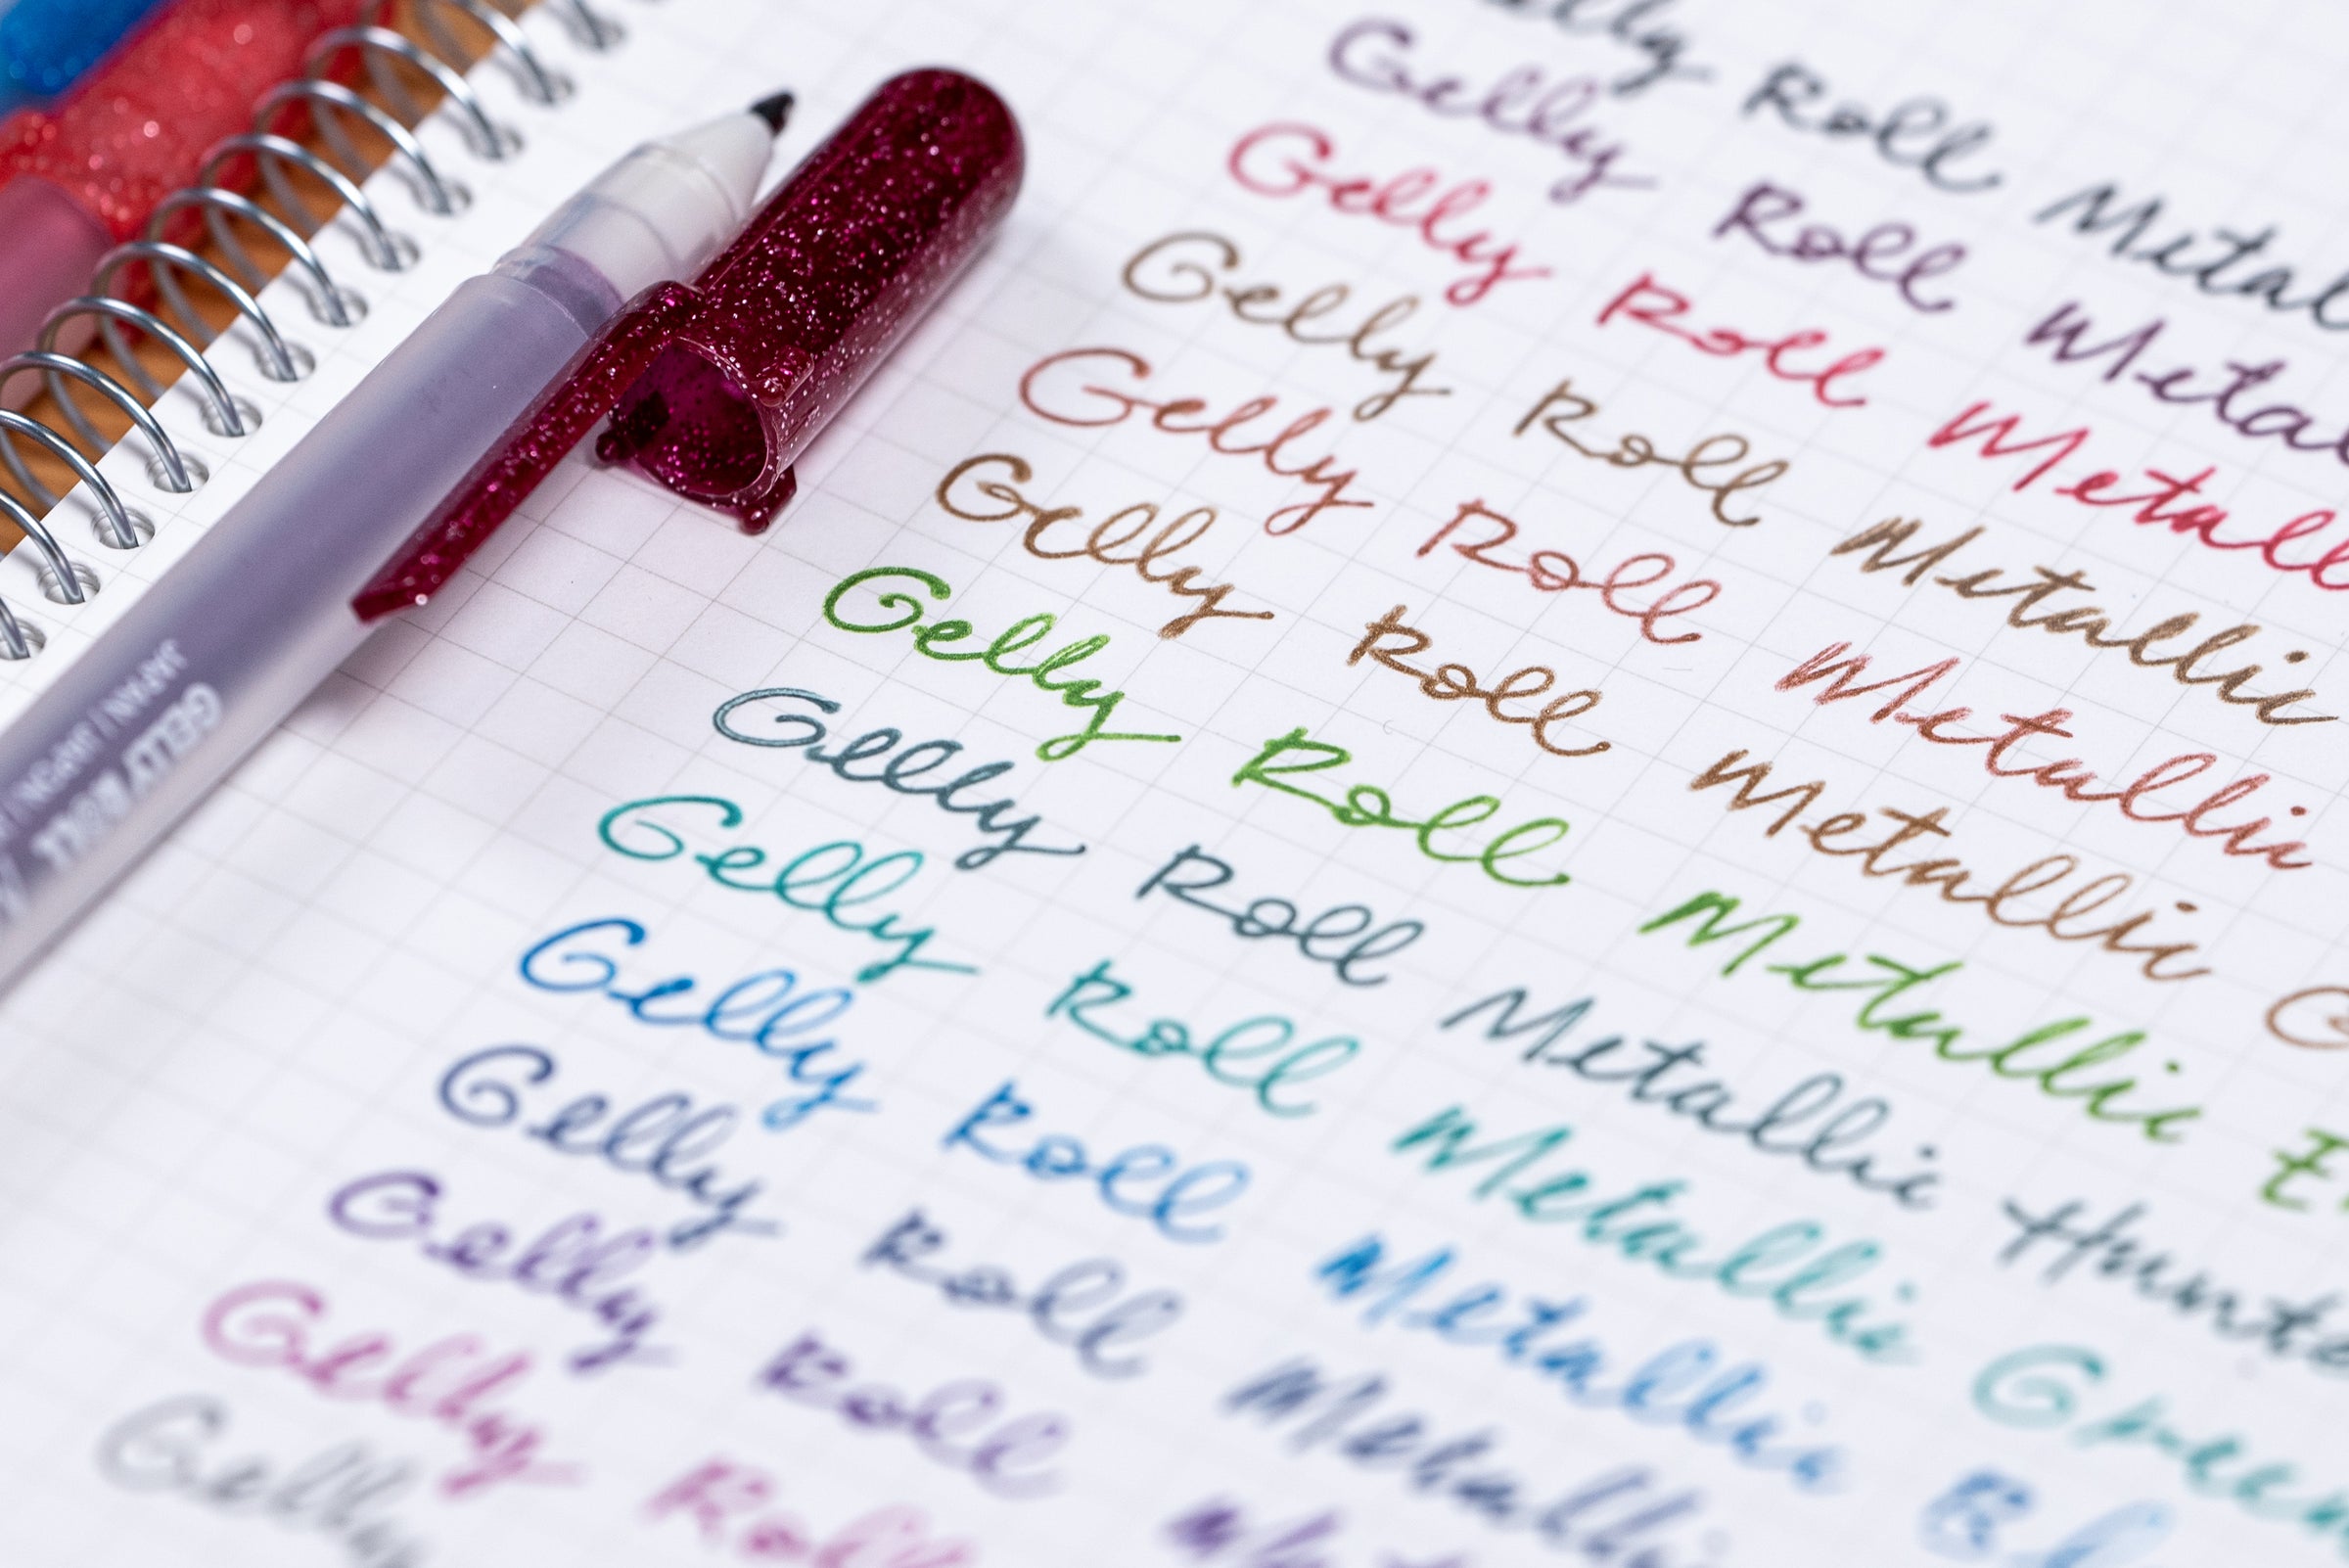 elly Roll Metal
Gelly Roll Meta
Gelly Roll Metall
Gelly Roll Metallic
Gelly Roll Metallic
Gelly Roll Metallic G
Gelly Roll Metallic
Gelly Roll Metallic Hunte
Gelly Roll Metallic Green
Gelly Roll Metallic Bl
Gelly Roll Metallic
Gelly Roll
Gelly Roll
Gelly
GELLY ROLL
JAPAN / JAPON /